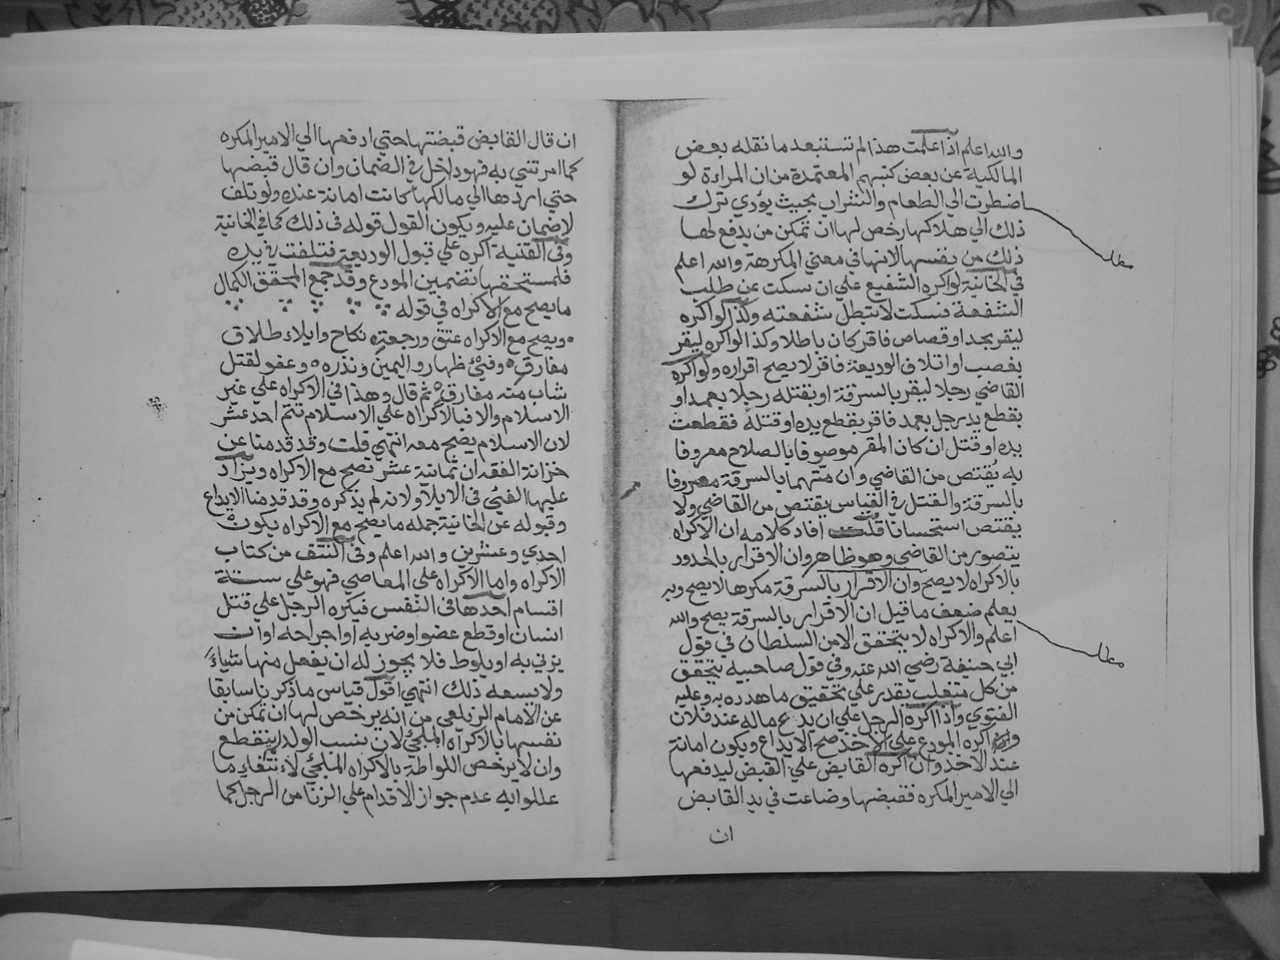 والله اعلم اذا علمت هذا لم تستبعد ما نقله بعض
المالكية عن بعض كتبهم المعتمدة من ان المرادة لو
اضطرت الي الطعام والشراب بحيث يؤدي ترك
ذلك الي هلاكها رخص لها ان تمكن من يدفع لها
ذلك من نفسها لانها في معني المكرهة والله اعلم
في الخانية لو اكره الشفيع علي ان سكت عن طلب
الشفعة فسكت لا تبطل شفعته وكذا لو اكره
ليقر بحد او قصاص فاقر كان باطلا وكذا لو اكره ليقر
بغصب او اتلاف الوديعة فاقر لا يصح اقراره ولو اكره
القاضي رجلا ليقر بالسرقة او بقتله رجلا بعمد او
بقطع يد رجل بعمد فاقر بقطع يده او قتله فقطعت
يده او قتل ان كان المقر موصوفا بالصلاح معروفا
به يقتص من القاضي وان متهما بالسرقة معروفا
بالسرقة والقتل في القياس يقتص من القاضي ولا
يقتص استحسانا قلت افاد كلامه ان الاكراه
يتصور من القاضي وهو ظاهر وان الاقرار بالحدود
بالاكراه لا يصح وان الاقرار بالسرقة مكرها لا يصح وبه
يعلم ضعف ما قيل ان الاقرار بالسرقة يصح والله
اعلم والاكراه لا يتحقق الا من السلطان في قول
ابي حنيفة رضي الله عنه وفي قول صاحبيه يتحقق
من كل متغلب يقدر علي تحقيق ما هدده به وعليه
الفتوي واذا اكره الرجل علي ان يدع ماله عند فلان
واكره المودع علي الاخذ صح الايداع ويكون امانة
عند الاخذ وان اكره القابض علي القبض ليدفعها
الي الامير المكره فقبضها وضاعت في يد القابض
ان
مطلب
مطلب
ان قال القابض قبضتها حتي ادفعها الي الامير المكره
كما امرتني به فهو داخل في الضمان وان قال قبضها
حتي اردها الي مالكها كانت امانة عنده ولو تلف
لا ضمان عليه ويكون القول قوله في ذلك كما في الخانية
وفي القنية اكره علي قبول الوديعة فتلفت في يده
فلمستحقها تضمين المودع وقد جمع المحقق الكمال
ما يصح مع الاكراه في قوله
ويصح مع الاكراه عتق ورجعة نكاح وايلاء طلاق
مفارق وفيئ ظهار واليمين ونذره وعفو لقتل
شاب منه مفارق ثم قال وهذا في الاكراه علي غير
الاسلام والا فبالاكراه علي الاسلام تتم احد عشر
لان الاسلام يصح معه انتهي قلت وقد قدمنا عن
خزانة الفقه ان ثمانية عشر تصح مع الاكراه ويزاد
عليها الفيئ في الايلاء ولانه لم يذكره وقد قدمنا الايداع
وقبوله عن الخانية جملة ما يصح مع الاكراه يكون
احدي وعشرين والله اعلم وفي النتف من كتاب
الاكراه واما الاكراه علي المعاصي فهو علي ستة
اقسام احدها في النفس فيكره الرجل علي قتل
انسان او قطع عضو او ضربه او اجراحه او ان
يزني به او يلوط فلا يجوز له ان يفعل منها شياء
ولا يسعه ذلك انتهي اقول قياس ما ذكرناه سابقا
عن الامام الزيلعي من انه يرخص لها ان تمكن من
نفسها بالاكراه الملجئ لان نسب الولد لا ينقطع
وان لا يرخص اللواطة بالاكراه الملجئ لانتفاء ما
عللوا به عدم جواز الاقدام علي الزنا من الرجل كما